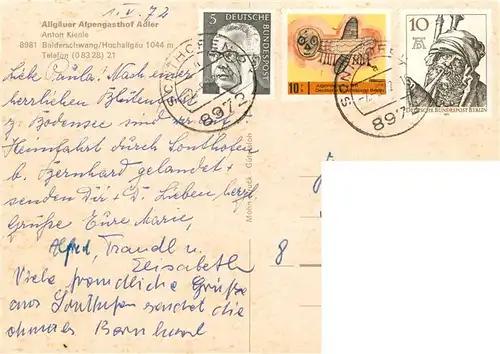 1.V.72
Allgäuer Alpengasthof Adler
Anton Kienle
8981 Balderschwang/Hochallgäu 1044 m
Telefon (0 83 28) 21
Liebe Paula, Nach einer
herrlichen Blütenfahrt
z. Bodensee sind wir am
Heimfahrt durch Sonthofen
b. Bernhard gelandet +
senden Dir + D. Lieben herzl.
Grüße Eure Marie,
Alfred, Traudl u.
Elisabeth
Viele freundliche Grüße
aus Sonthofen sendet die
Bernhard
5
DEUTSCHE BUNDESPOST
10
DEUTSCHE BUNDESPOST BERLIN
8972
8972
8